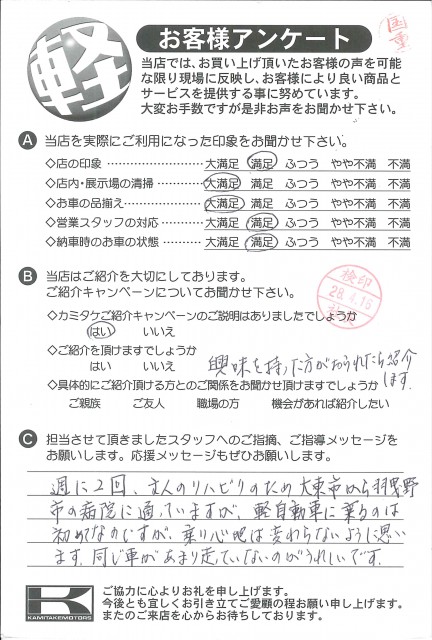 軽
お客様アンケート
当店では、お買い上げ頂いたお客様の声を可能
な限り現場に反映し、お客様により良い商品と
サービスを提供する事に努めています。
大変お手数ですが是非お声をお聞かせ下さい。
A 当店を実際にご利用になった印象をお聞かせ下さい。
◇店の印象 大満足 満足 ふつう やや不満 不満
◇店内・展示場の清掃 大満足 満足 ふつう やや不満 不満
◇お車の品揃え 大満足 満足 ふつう やや不満 不満
◇営業スタッフの対応 大満足 満足 ふつう やや不満 不満
◇納車時のお車の状態 大満足 満足 ふつう やや不満 不満
B 当店はご紹介を大切にしてあります。
ご紹介キャンペーンについてお聞かせ下さい。
検印
28.4.16
◇カミタケご紹介キャンペーンのご説明はありましたでしょうか
はい いいえ
◇ご紹介を頂けますでしょうか
はい いいえ
興味を持った方がおられたら紹介
します。
◇具体的にご紹介頂ける方とのご関係をお聞かせ頂けますでしょうか
ご親族 ご友人 職場の方 機会があれば紹介したい
C 担当させて頂きましたスタッフへのご指摘、ご指導メッセージを
お願いします。応援メッセージもぜひお願いします。
週に2回、主人のリハビリのため大東市から羽曳野
市の病院に通っていますが、軽自動車に乗るのは
初めてなのですが、乗り心地は変わらないように思い
ます。同じ車があまり走っていないのがうれしいです。
K
KAMITAKEMOTORS
ご協力に心よりお礼を申し上げます。
今後とも宜しくお引き立てご愛顧の程お願い申し上げます。
またのご来店を心からお待ちしております。